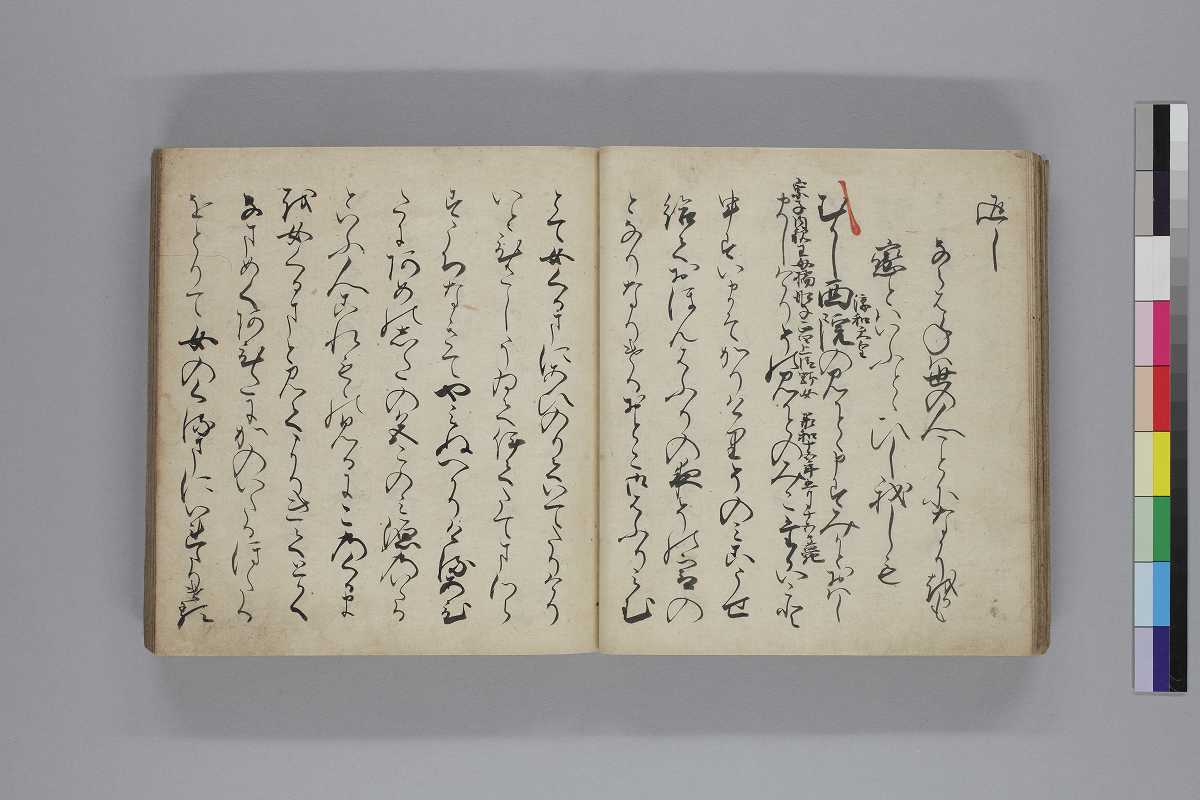 返し
ならはねは世の人ことになにをかも
恋とはいふとゝひし我しも
淳和天皇
むかし西院のみかとゝ申すみかとおはし
崇子内親王母橘船子正四上清野女 承和十五年五月十五日薨
ましけりそのみかとのみこたかいこと
申すいまそかりけりそのみこうせ
給ておほんはふりの夜その宮の
となりなりけるおとこ御はふりみむ
とて女くるまにあひのりていてたりけり
いとひさしうゐていてたてまつら
すうちなきてやみぬへかりけるあひ
たにあめのしたの色このみ源のいたる
といふ人これもゝのみるにこのくるま
を女くるまとみてよりきてとかく
なまめくあひたにかのいたるほたる
をとりて女のくるまにいれたりける